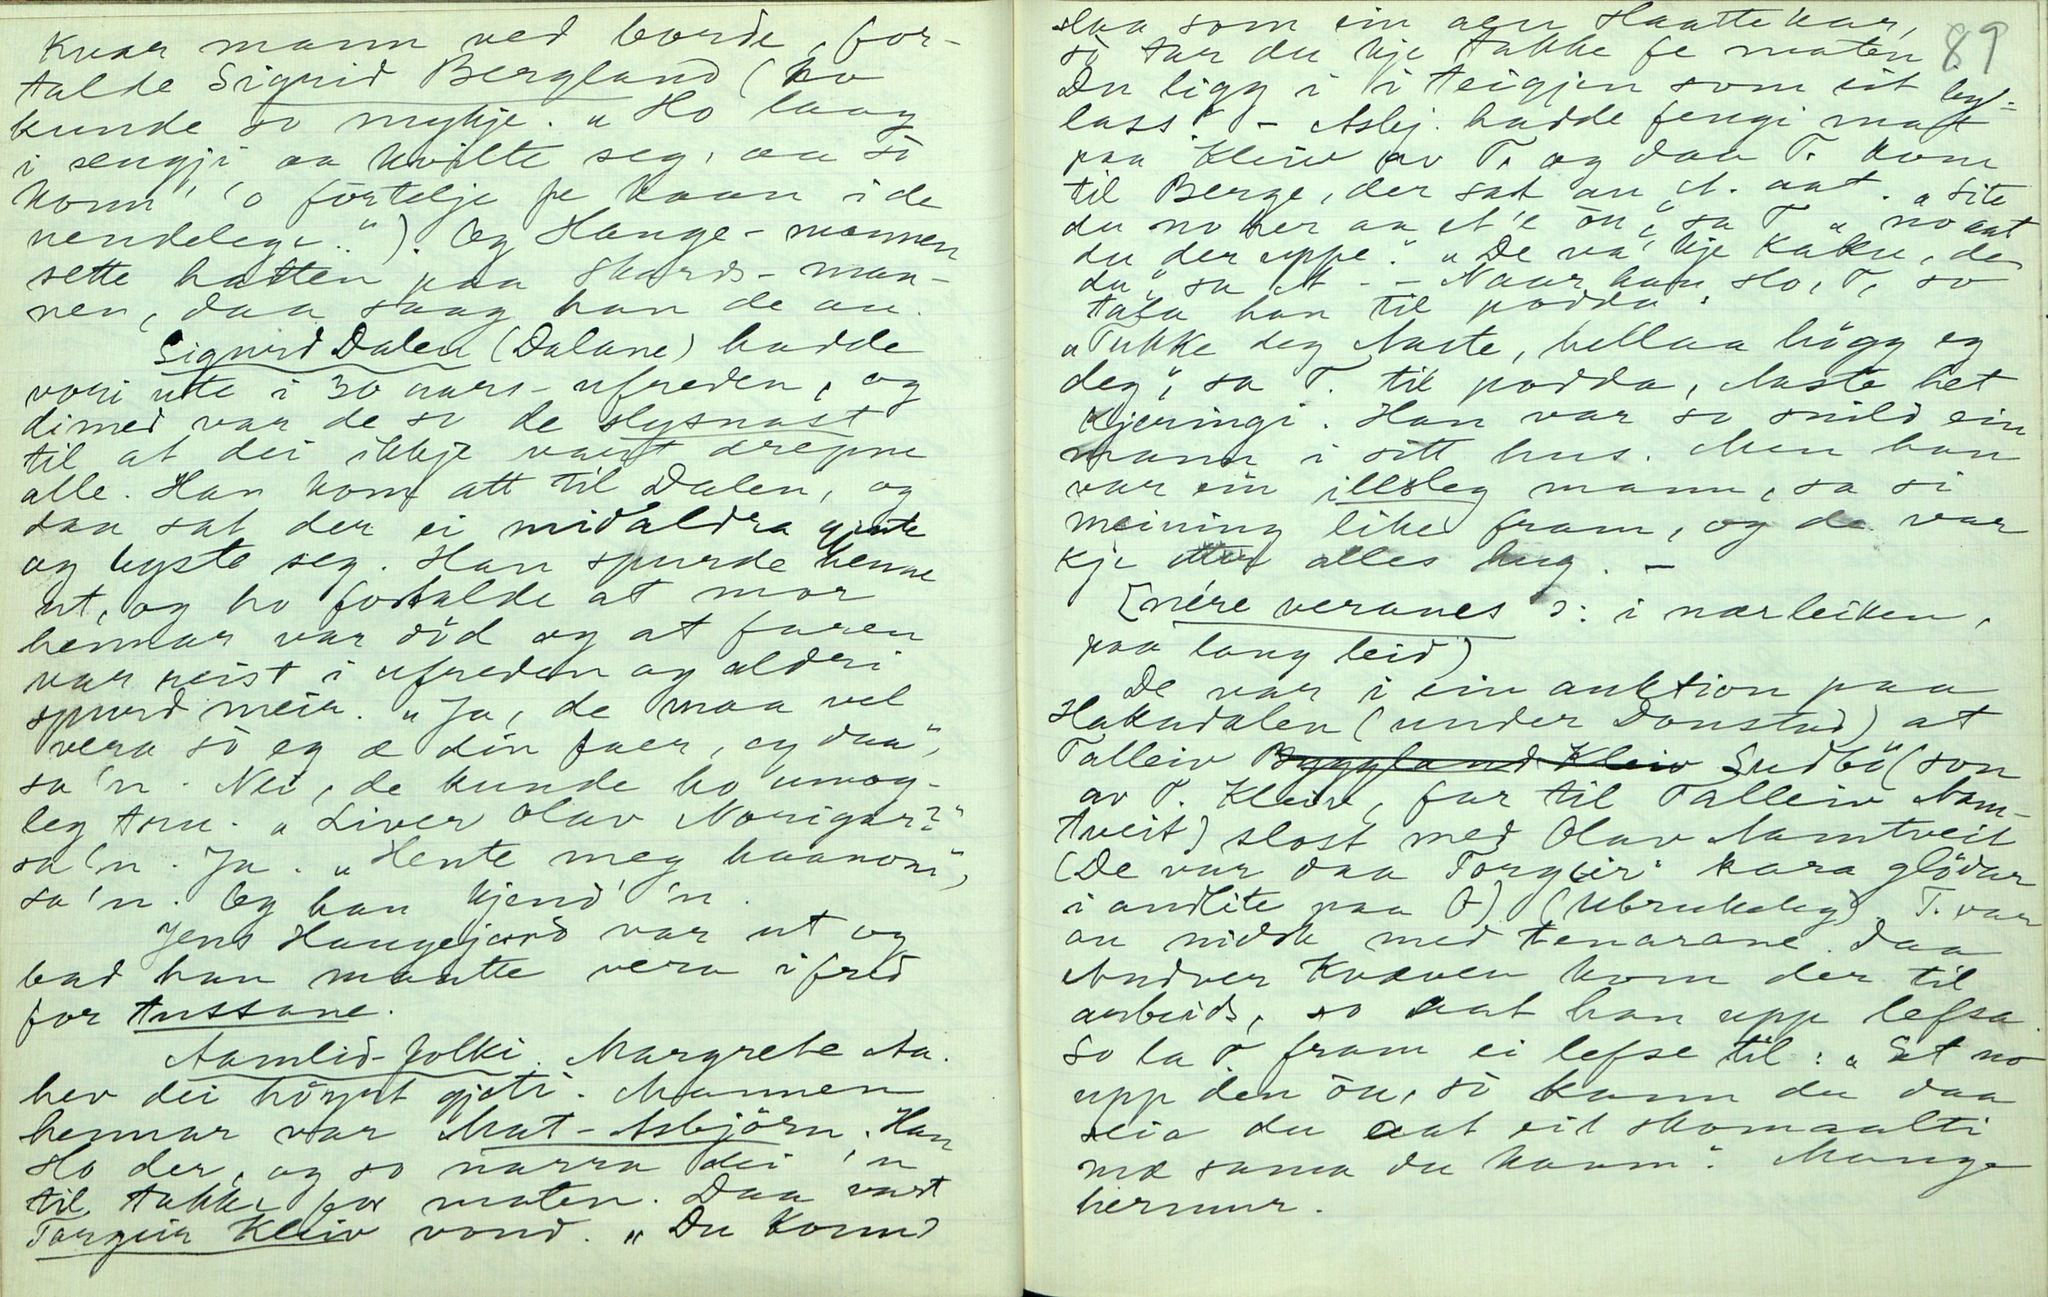 kvar mann ved borde, for-
talde Sigrid Bergland (ho
kunde so mykje. "Ho laag
i sengji aa kvilte seg, aa so
kom 'o förtelje fe haan i de
nendelege.."). Og Hauge-mannen
sette hatten paa Skards-man-
nen, daa saag han de au.
Sigurd Dalen (Dalane) hadde
vori ute i 30 aars-ufreden, og
dimed var de so de slysnast
til at dei ikkje vart drepne
alle. Han kom att til Dalen, og
daa sat der ei midaldra gjente
og lyste seg. Han spurde henne
ut, og ho fortalde at mor
hennar var död og at faren
var reist i ufreden og aldri
spurd meir. "Ja, de maa vel
vera so eg æ din faer, eg daa",
sa 'n. Nei, de kunde ho umog-
leg tru. "Liver Olav Norigar?"
sa 'n. Ja. "Hente meg haanom",
sa 'n. Og han kjend' 'n.
Jens Haugejord var ut og
bad han maatte vera i fred
for tussane.
Aamlid-folki. Margrete Aa.
hev dei högst gjeti. Mannen
hennar var Mat-Asbjörn. Han
slo der, og so narra dei 'n
til takke for maten. Daa vart
Torgeir Kleiv vond. "Du konne
slaa som ein aen Haattekar,
so tar du kje takke fe maten 89
Du ligg i i teigjen som eit løy-
lass" - Asbj. hadde fengi mat
paa Kleiv av T. og daa T. kom
til Berge, der sat an A. aat. "Site
du no her aa et'e öu", sa T "no aat
du der uppe." "De va' kje kaku, de
da", sa A. - Naar han slo, T, so
tala han til podda.
"Tukke deg Aaste, hellaa högg eg
deg", sa T. til podda, Aaste het
kjeringi. Han var so snild ein
mann i sitt hus. Men han
var ein illsleg mann, sa si
meining like fram, og de var
kje etter alles hug. -
[nére veranes ɔ: i nærleiken,
paa lang leid)
De var i ein auktion paa
Hakadalen (under Donstad) at
Talleiv Byggland Kleiv Sudbö (son
av T. Kleiv, far til Talleiv Nam-
tveit) slost med Olav Namtveit
(De var daa Torgeir kara glödar
i andlite paa O) (Ubrukeleg). T. var
au nidsk med tenarane. Daa
Andver Kvæven kom der til
arbeids, so aat han upp lefsa.
So la T fram ei lefse til: "Et no
upp den öu, so kann du daa
seia du aat eit skomaalti
mæ sama du kaam". Mange
hermur.